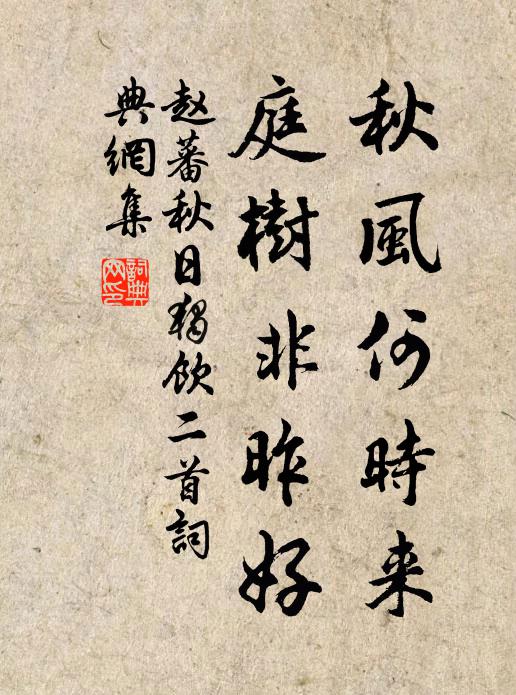 秋風何時来
庭樹非昨好
赵蕃秋日獨飲二首詞
典網集
詞典
网印